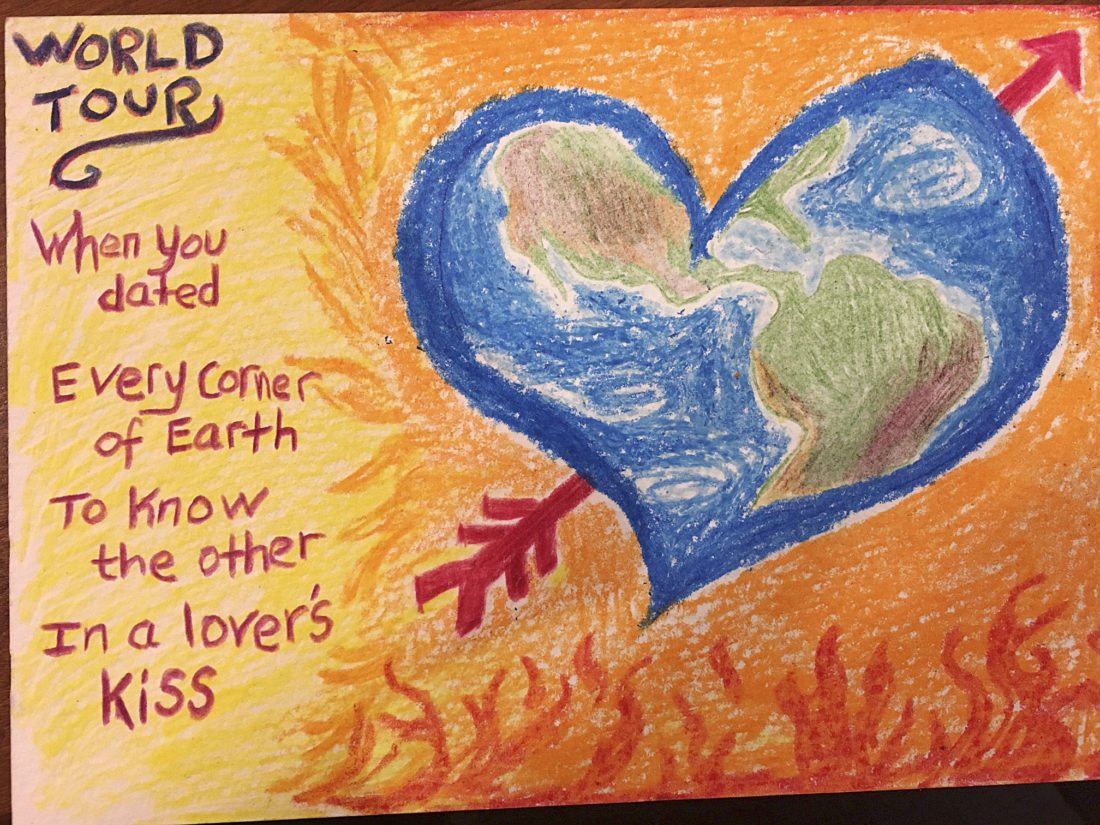 WORLD
TOUR
When you
dated
Every Corner
of Earth
To Know
the other
In a lover's
Kiss